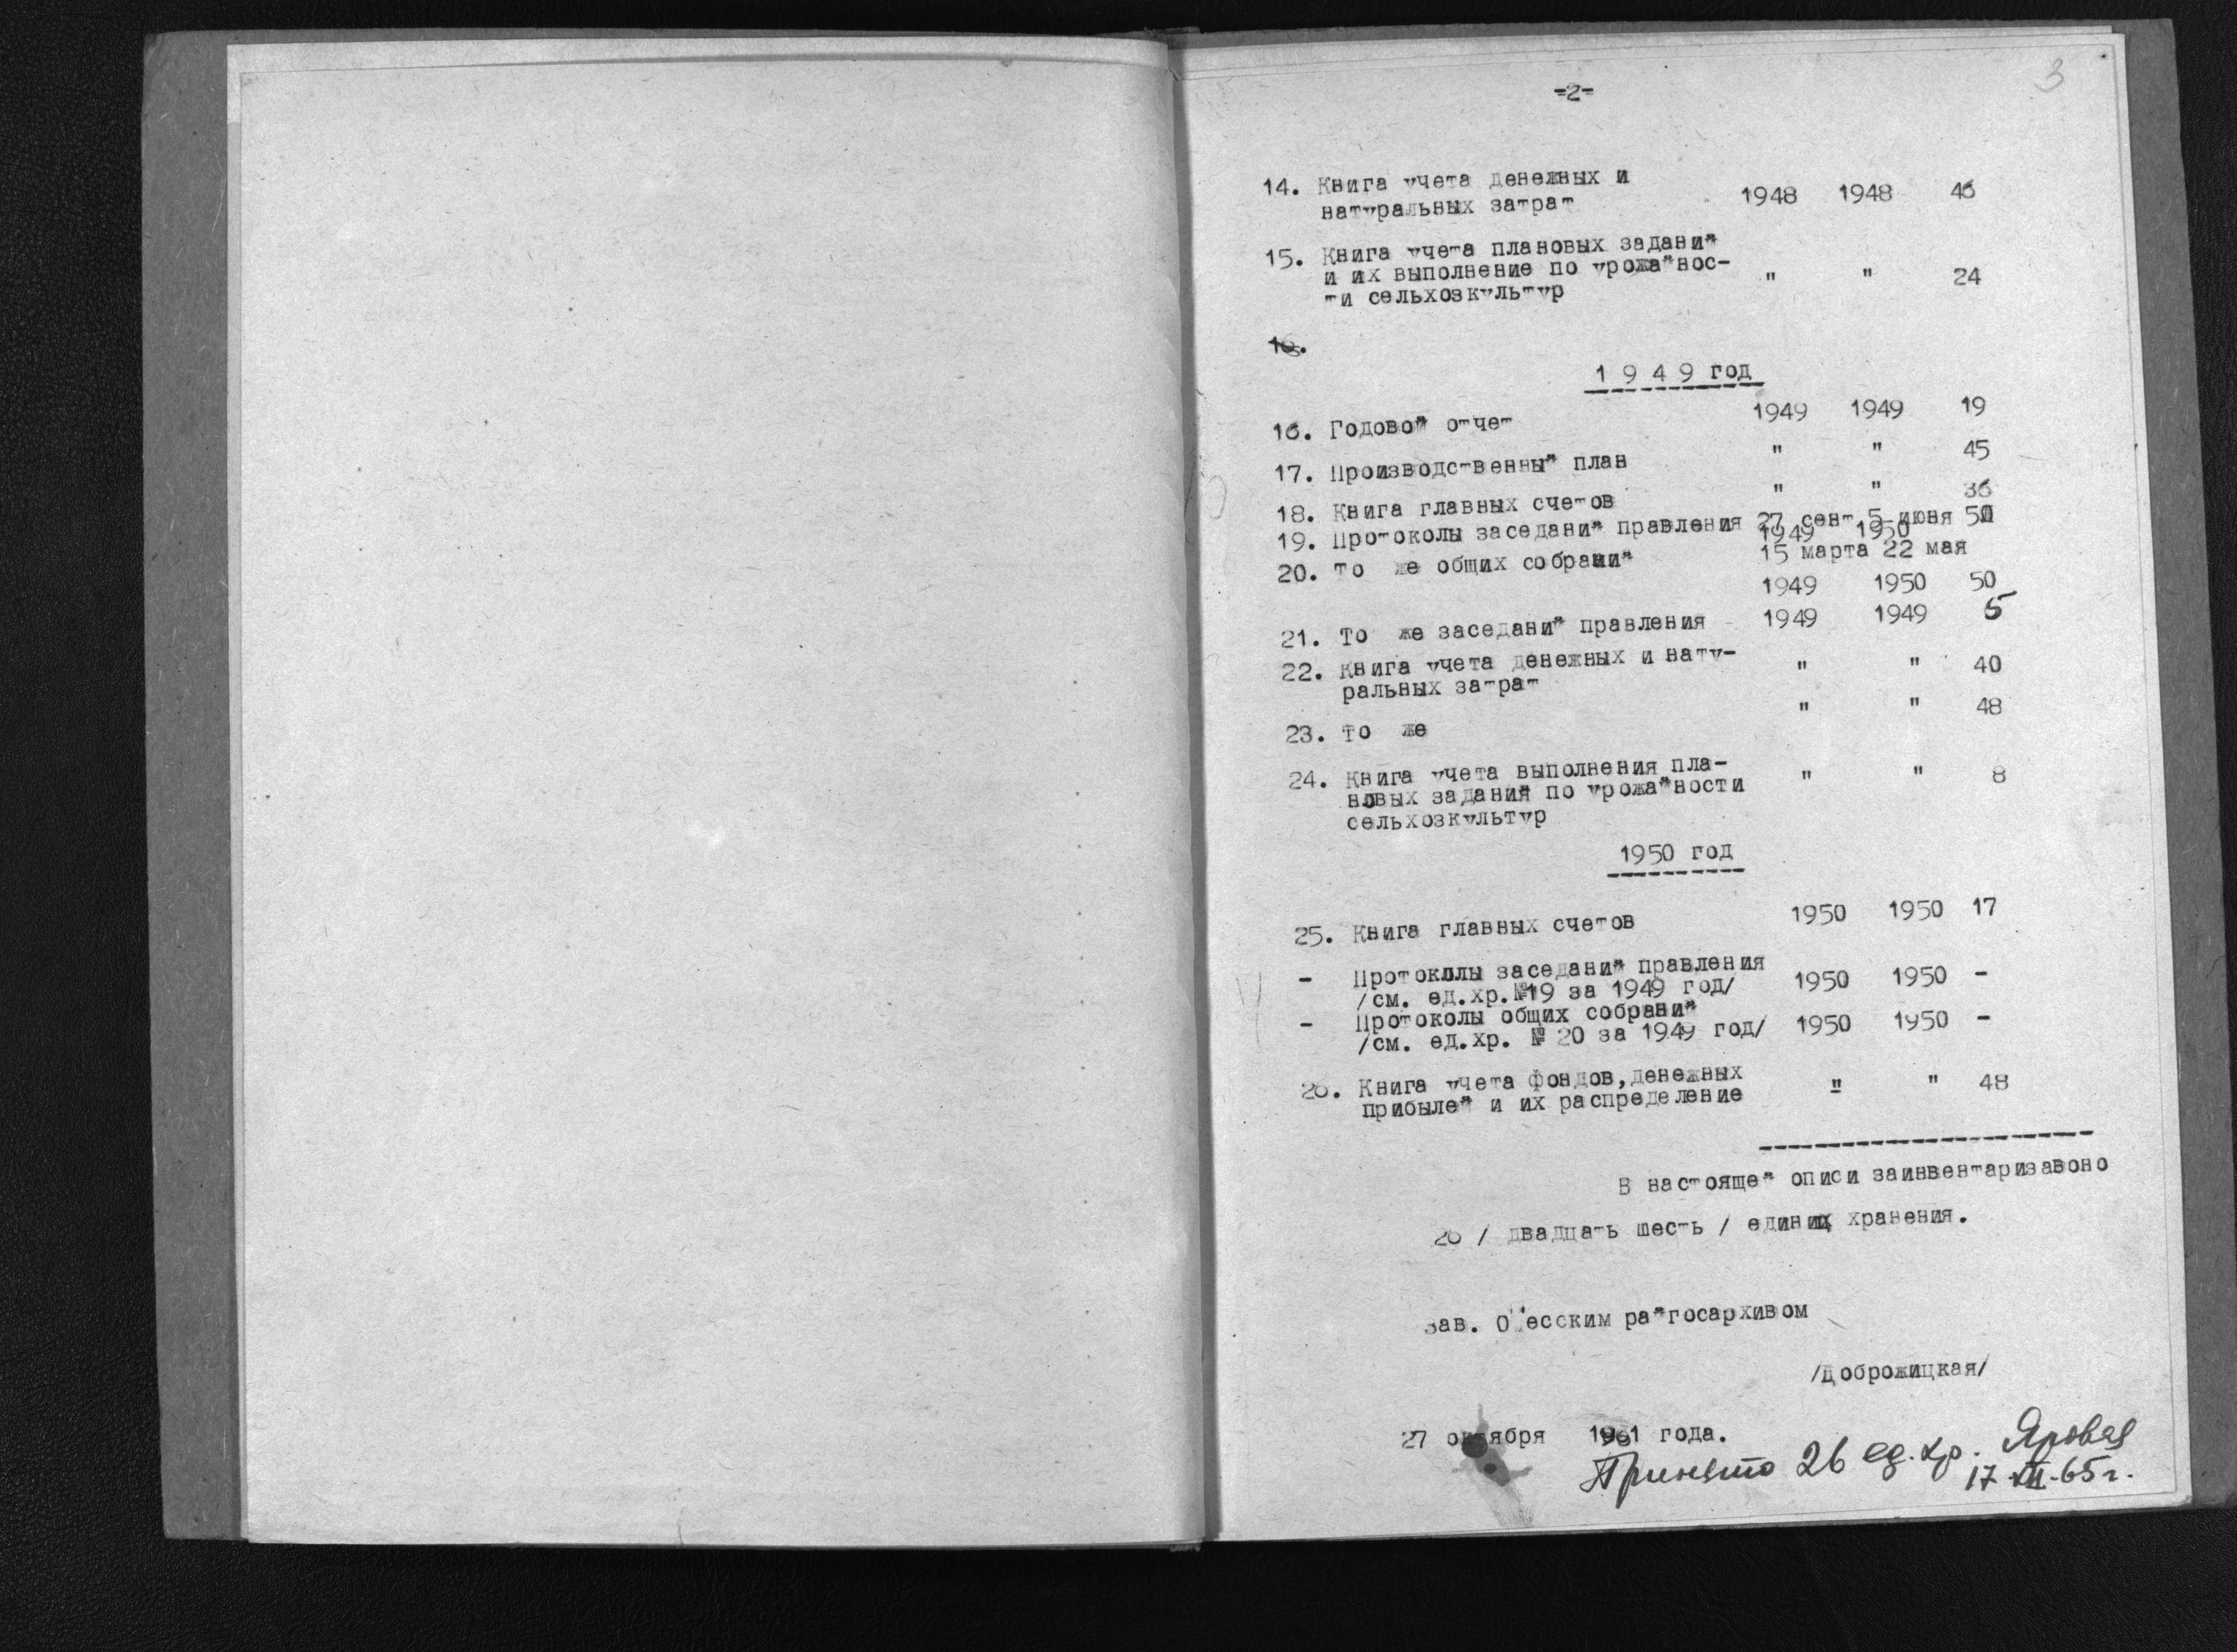 3
-2-
14. Книга учета денежных и
натуральных затрат 1948 1948 46
15. Книга учета плановых заданий
и их выполнение по урожайнос-
ти сельхозкультур " " 24
16.
1 9 4 9 год
16. Годовой отчет 1949 1949 19
17. Производственный план " " 45
18. Книга главных счетов " " 36
19. Протоколы заседаний правления 27 сент 5 июня 50
1949 1950
20. То же общих собраний 15 марта 22 мая
1949 1950 50
21. То же заседаний правления 1949 1949 5
22. Книга учета денежных и нату-
ральных затрат " " 40
23. То же " " 48
24. Книга учета выполнения пла-
новых заданий по урожайности
сельхозкультур " " 8
1950 год
25. Книга главных счетов 1950 1950 17
- Протоколы заседаний правления
/см. ед.хр.№19 за 1949 год/ 1950 1950 -
- Протоколы общих собраний
/см. ед.хр. № 20 за 1949 год/ 1950 1950 -
26. Книга учета фондов, денежных
прибылей и их распределение " " 48
В настоящей описи заинвентаризавоно
26 / двадцать шесть / единиц хранения.
Зав. Одесским райгосархивом
/Доброжицкая/
27 октября 1961 года.
Принято 26 ед. хр. Яровая
17.XII.65 г.